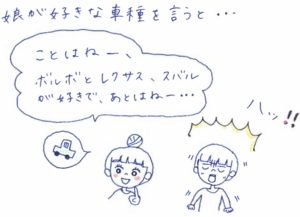 娘が好きな車種を言うと・・・
ことはねー、
ボルボとレクサス、スバル
が好きで、あとはねー・・・
ハッ!!